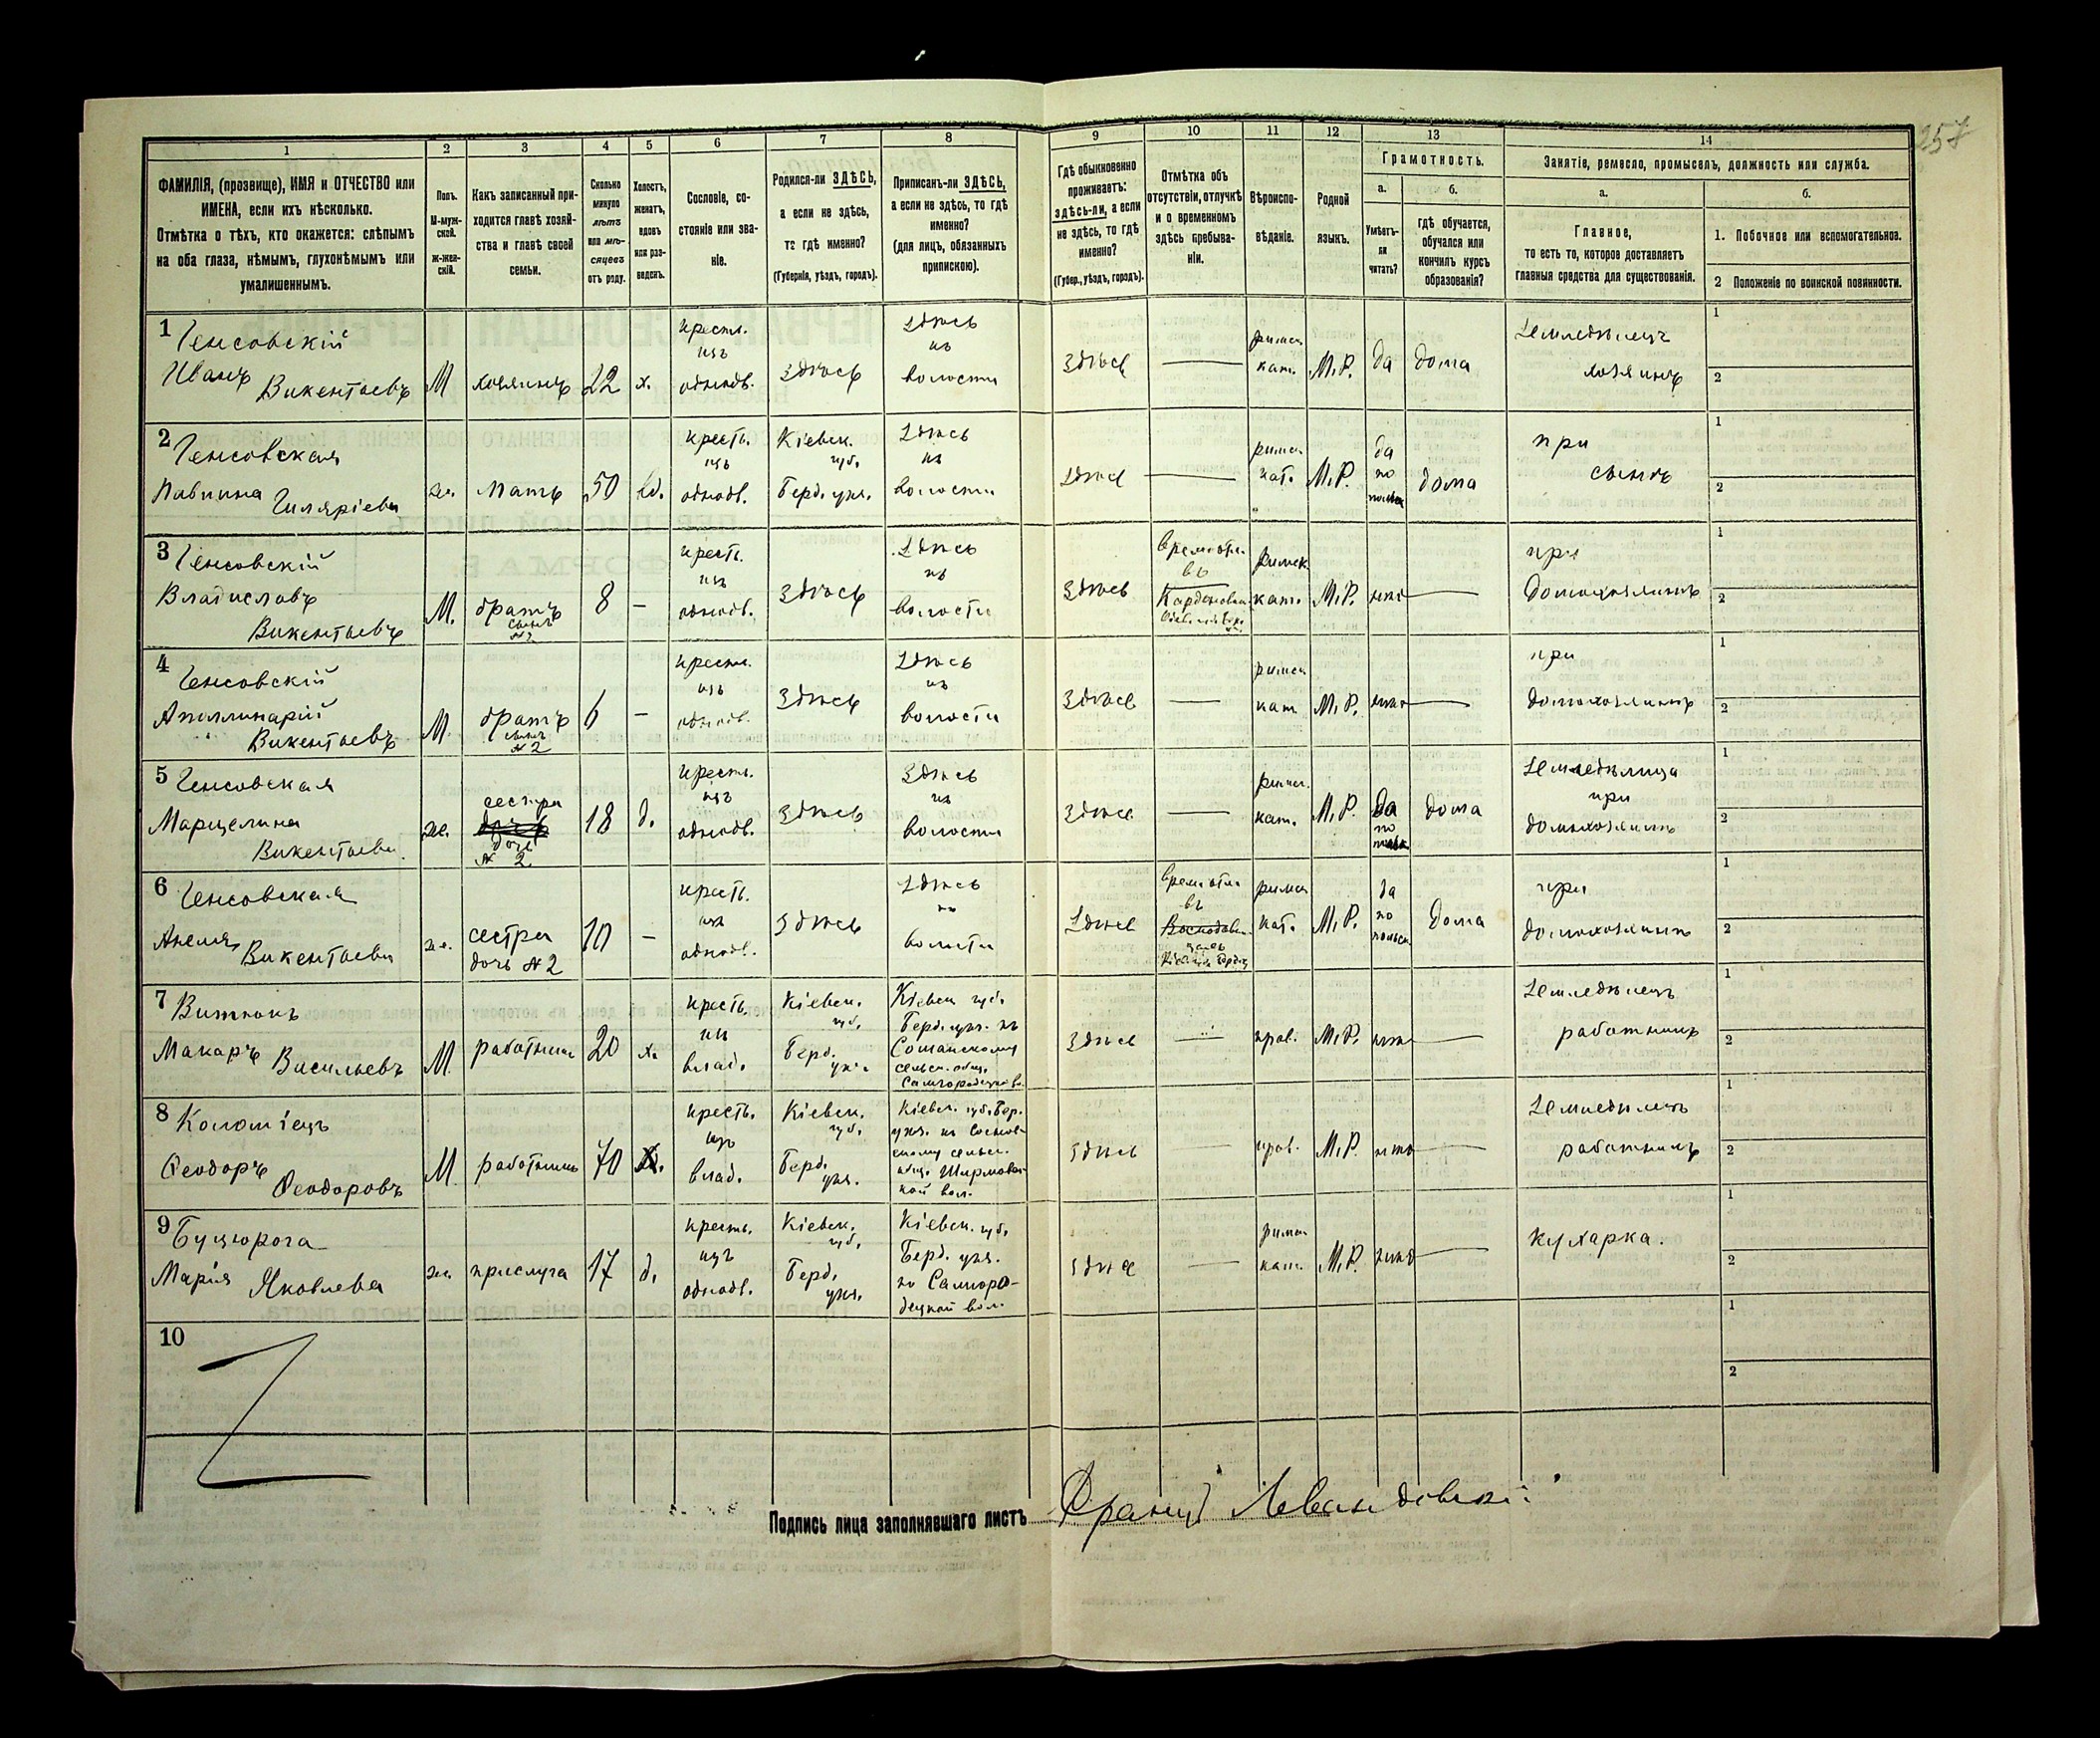 257
1
2
3
4
5
6
7
8
9
10
11
12
13
14
ФАМИЛІЯ, (прозвище), ИМЯ и ОТЧЕСТВО или
ИМЕНА, если ихъ нѣсколько.
Отмѣтка о тѣхъ, кто окажется: слѣпымъ
на оба глаза, нѣмымъ, глухонѣмымъ или
умалишеннымъ.
Полъ.
М-муж-
ской.
ж-жен-
скій.
Какъ записанный при-
ходится главѣ хозяй-
ства и главѣ своей
семьи.
Сколько
минуло
лѣтъ
или мѣ-
сяцевъ
отъ роду.
Холостъ,
женатъ,
вдовъ
или раз-
веденъ.
Сословіе, со-
стояніе или зва-
ніе.
Родился-ли ЗДѢСЬ,
а если не здѣсь,
то гдѣ именно?
(Губернія, уѣздъ, городъ).
Приписанъ-ли ЗДѢСЬ,
а если не здѣсь, то гдѣ
именно?
(для лицъ, обязанныхъ
припискою).
Гдѣ обыкновенно
проживаетъ:
здѣсь-ли, а если
не здѣсь, то гдѣ
именно?
(Губер., уѣздъ, городъ).
Отмѣтка объ
отсутствіи, отлучкѣ
и о временномъ
здѣсь пребыва-
ніи.
Вѣроиспо-
вѣданіе.
Родной
языкъ.
Грамотность.
а.
Умѣетъ-
ли
читать?
б.
гдѣ обучается,
обучался или
кончилъ курсъ
образованія?
Занятіе, ремесло, промыселъ, должность или служба.
а.
Главное,
то есть то, которое доставляетъ
главныя средства для существованія.
б.
1. Побочное или вспомогательное.
2 Положеніе по воинской повинности.
1 Генсовскій
Иванъ
Викентьевъ
М
хозяинъ
22
х.
крестн.
изъ
однодв.
Здѣсь
Здѣсь
къ
волости
Здѣсь
—
римск
кат.
М.Р.
да
дома
Земледѣлецъ
хозяинъ
1
2
2 Генсовская
Павлина
Гиляріева
же.
мать
50
вд.
кресть.
изъ
однодв.
Кіевск.
губ.
Берд. уѣз.
Здѣсь
къ
волости
Здѣсь
—
римск
кат.
М.Р.
да
по
польск
дома
при
сынѣ
1
2
3 Генсовскій
Владиславъ
Викентьевъ
М.
братъ
сынъ
№2
8
—
кресть.
изъ
однодв.
Здѣсь
Здѣсь
къ
волости
Здѣсь
врем. отл.
въ
римск
кат.
М.Р.
нѣтъ
—
при
домохозяинѣ
1
2
4 Генсовскій
Аполлинарій
Викентьевъ
М.
братъ
сынъ
№2
6
—
крестн.
изъ
однодв.
Здѣсь
Здѣсь
къ
волости
Здѣсь
—
римск
кат
М.Р.
нѣтъ
—
при
домохозяинѣ
1
2
5 Генсовская
Марцелина
Викентьева
же.
сестра
дочь
№ 2.
18
д.
крестн.
изъ
однодв.
Здѣсь
Здѣсь
къ
волости
Здѣсь
—
римск.
кат.
М.Р.
Да
по
польск
дома
Земледѣлица
при
домохозяинѣ
1
2
6 Генсовская
Анеля
Викентьева
же.
сестра
дочь №2
10
—
кресть.
изъ
однодв.
Здѣсь
Здѣсь
къ
волости
Здѣсь
врем. отл.
въ
римск
кат.
М.Р.
да
по
польск
Дома
при
домохозяинѣ
1
2
7 Витюкъ
Макаръ
Васильевъ
М.
работникъ
20
х.
кресть.
изъ
влад.
Кіевск.
губ.
Берд.
уѣз.
Кіевск губ.
Берд. уѣз. къ
Сошанскому
сельск. общ.
Самгородецкой в.
Здѣсь
—
прав.
М.Р.
нѣтъ
—
Земледѣлецъ
работникъ
1
2
8 Коломіецъ
Феодоръ
Феодоровъ
М.
работникъ
70
кресть.
изъ
влад.
Кіевск.
губ.
Берд.
уѣз.
Кіевск. губ. Бер.
уѣз. къ
сельск.
общ. Ширмовс-
кой вол.
Здѣсь
—
прав.
М.Р.
нѣтъ
—
Земледѣлецъ
работникъ
1
2
9 Буцюрога
Марія
Яковлева
же.
прислуга
17
д.
крестн.
изъ
однодв.
Кіевск.
губ.
Берд.
уѣз.
Кіевск. губ.
Берд. уѣз.
къ Самгоро-
децкой вол.
Здѣсь
—
римск
кат.
М.Р.
нѣтъ
—
кухарка.
1
2
10
1
2
Подпись лица заполнявшаго листъ Францъ Левандовскій